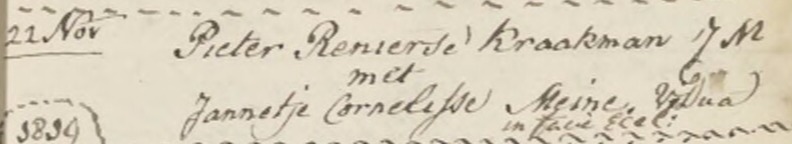 22 Nov
Pieter Renierse Kraakman J M
met
Jannetje Cornelisse Meine. Vidua
in facie Eccl:
1819